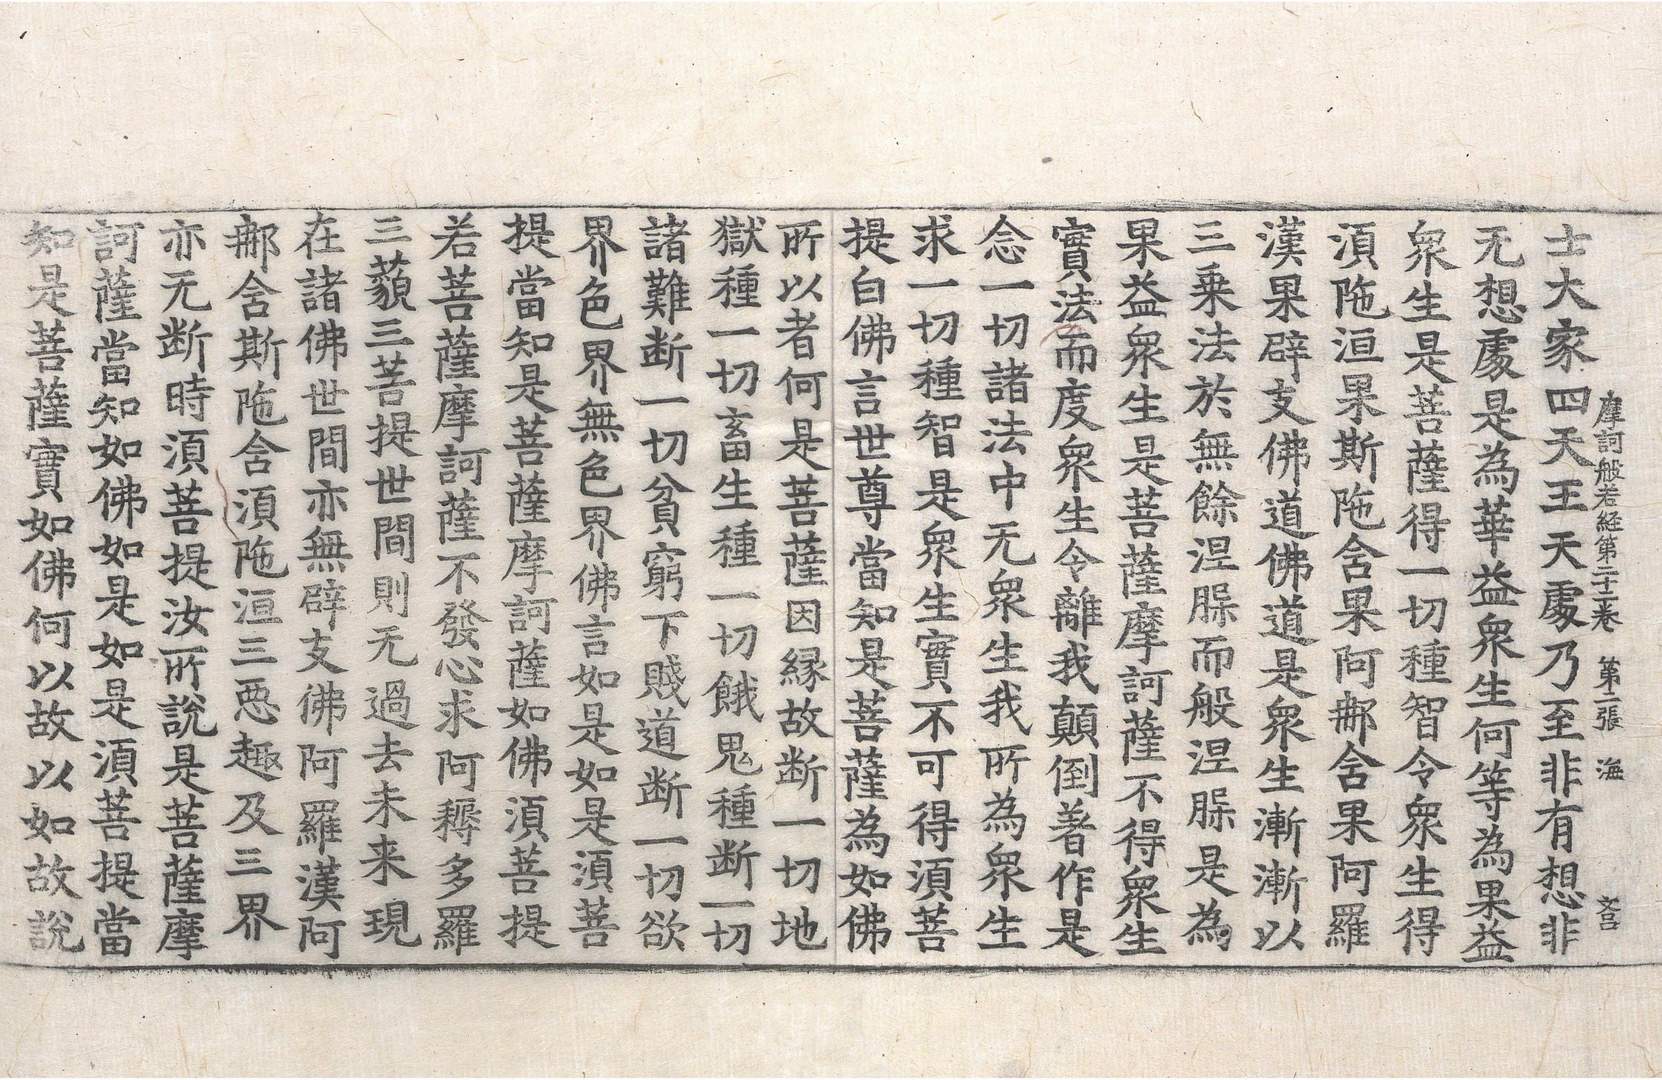 摩訶般若経第二十二卷 第二張 海
士大家四天王天處乃至非有想非
无想處是為華益衆生何等為果益
衆生是菩薩得一切種智令衆生得
湏陁洹果斯陁含果阿那含果阿羅
漢果辟支佛道佛道是衆生漸漸以
三乗法於無餘涅槃而般涅槃是為
果益衆生是菩薩摩訶薩不得衆生
實法而度衆生令離我顛倒著作是
念一切諸法中无衆生我所為衆生
求一切種智是衆生實不可得湏菩
提白佛言世尊當知是菩薩為如佛
所以者何是菩薩因縁故断一切地
獄種一切畜生種一切餓鬼種断一切
諸難断一切貧窮下賤道断一切欲
界色界無色界佛言如是如是湏菩
提當知是菩薩摩訶薩如佛湏菩提
若菩薩摩訶薩不發心求阿耨多羅
三藐三菩提世間則无過去未来現
在諸佛世間亦無辟支佛阿羅漢阿
那含斯陁含湏陁洹三惡趣及三界
亦无断時湏菩提汝所說是菩薩摩
訶薩當知如佛如是如是湏菩提當
知是菩薩實如佛何以故以如故說